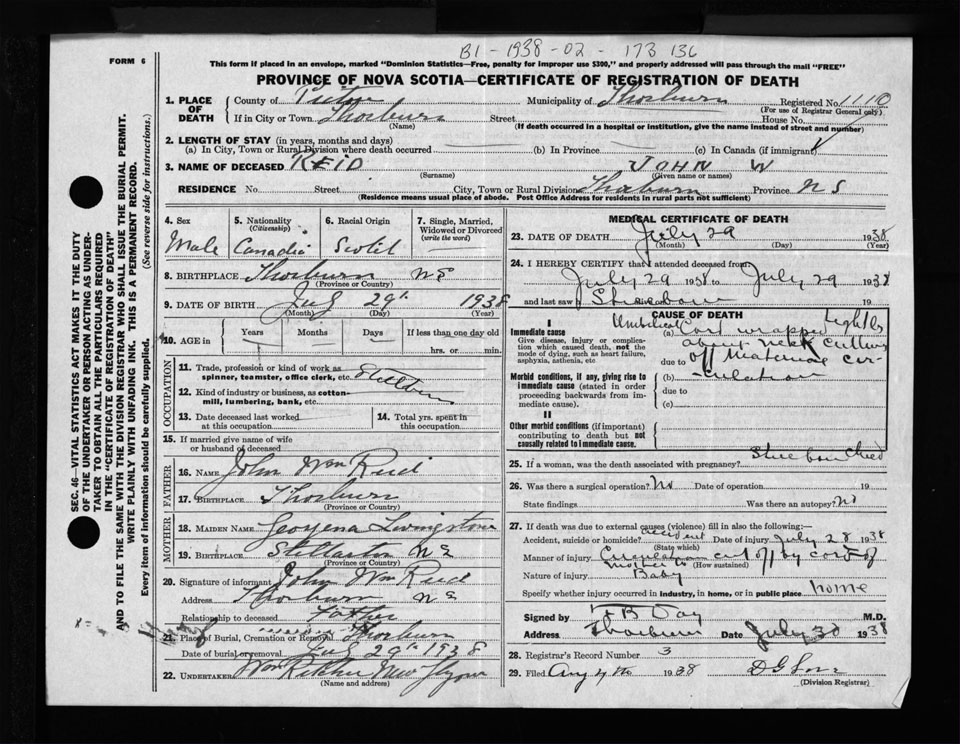 B1 - 1938 - 02 - 173 136
FORM 6
This form if placed in an envelope, marked "Dominion Statistics—Free, penalty for improper use $300," and properly addressed will pass through the mail "FREE"
PROVINCE OF NOVA SCOTIA—CERTIFICATE OF REGISTRATION OF DEATH
SEC. 46—VITAL STATISTICS ACT MAKES IT THE DUTY
OF THE UNDERTAKER OR PERSON ACTING AS UNDER-
TAKER TO OBTAIN ALL THE PARTICULARS REQUIRED
IN THE "CERTIFICATE OF REGISTRATION OF DEATH"
AND TO FILE THE SAME WITH THE DIVISION REGISTRAR WHO SHALL ISSUE THE BURIAL PERMIT.
WRITE PLAINLY WITH UNFADING INK. THIS IS A PERMANENT RECORD.
Every item of information should be carefully supplied. (See reverse side for instructions.)
1. PLACE OF DEATH
County of Pictou Municipality of Thorburn Registered No. 1110
(For use of Registrar General only)
If in City or Town Thorburn Street House No.
(Name) (If death occurred in a hospital or institution, give the name instead of street and number)
2. LENGTH OF STAY (in years, months and days)
(a) In City, Town or Rural Division where death occurred (b) In Province (c) In Canada (if immigrant)
3. NAME OF DECEASED REID JOHN W
(Surname) (Given name or names)
RESIDENCE No. Street City, Town or Rural Division Thorburn Province NS
(Residence means usual place of abode. Post Office Address for residents in rural parts not sufficient)
4. Sex Male
5. Nationality (Citizenship) Canadia
6. Racial Origin Scotch
7. Single, Married, Widowed or Divorced (write the word)
8. BIRTHPLACE Thorburn NS
(Province or Country)
9. DATE OF BIRTH July 29th 1938
(Month) (Day) (Year)
10. AGE in Years Months Days If less than one day old
hrs. or min.
OCCUPATION
11. Trade, profession or kind of work as spinner, teamster, office clerk, etc. Stillborn
12. Kind of industry or business, as cotton-mill, lumbering, bank, etc.
13. Date deceased last worked at this occupation
14. Total yrs. spent in this occupation
15. If married give name of wife or husband of deceased
FATHER
16. NAME John Wm Reid
17. BIRTHPLACE Thorburn
(Province or Country)
MOTHER
18. MAIDEN NAME Georgena Livingstone
19. BIRTHPLACE Stellarton NS
(Province or Country)
20. Signature of informant John Wm Reid
Address Thorburn NS
Relationship to deceased Father
21. Place of Burial, Cremation or Removal Thorburn
Date of burial or removal July 29th 1938
22. UNDERTAKER Wm
(Name and address)
MEDICAL CERTIFICATE OF DEATH
23. DATE OF DEATH July 29 1938
(Month) (Day) (Year)
24. I HEREBY CERTIFY that I attended deceased from
July 29 1938 to July 29 1938
and last saw h 19
CAUSE OF DEATH
I
Immediate cause
Give disease, injury or complication which caused death, not the mode of dying, such as heart failure, asphyxia, asthenia, etc.
(a) Umbilical Cord wrapped tightly
about neck cutting
due to off maternal cir-
Morbid conditions, if any, giving rise to immediate cause (stated in order proceeding backwards from immediate cause).
(b) culation
due to
(c)
II
Other morbid conditions (if important) contributing to death but not causally related to immediate cause.
25. If a woman, was the death associated with pregnancy?
26. Was there a surgical operation? No Date of operation 19
State findings Was there an autopsy? No
27. If death was due to external causes (violence) fill in also the following:—
Accident, suicide or homicide? accident Date of injury July 28 1938
(State which)
Manner of injury Circulation cut off by cord of
(How sustained)
mother to
Nature of injury Baby
Specify whether injury occurred in industry, in home, or in public place home
Signed by F B Day M.D.
Address Thorburn Date July 30 1938
28. Registrar's Record Number 3
29. Filed Aug 4th 1938
(Division Registrar)